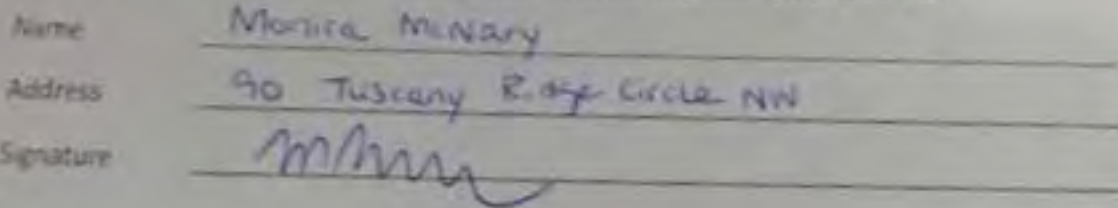 Name Monica McNary
Address 90 Tuscany Ridge Circle NW
Signature